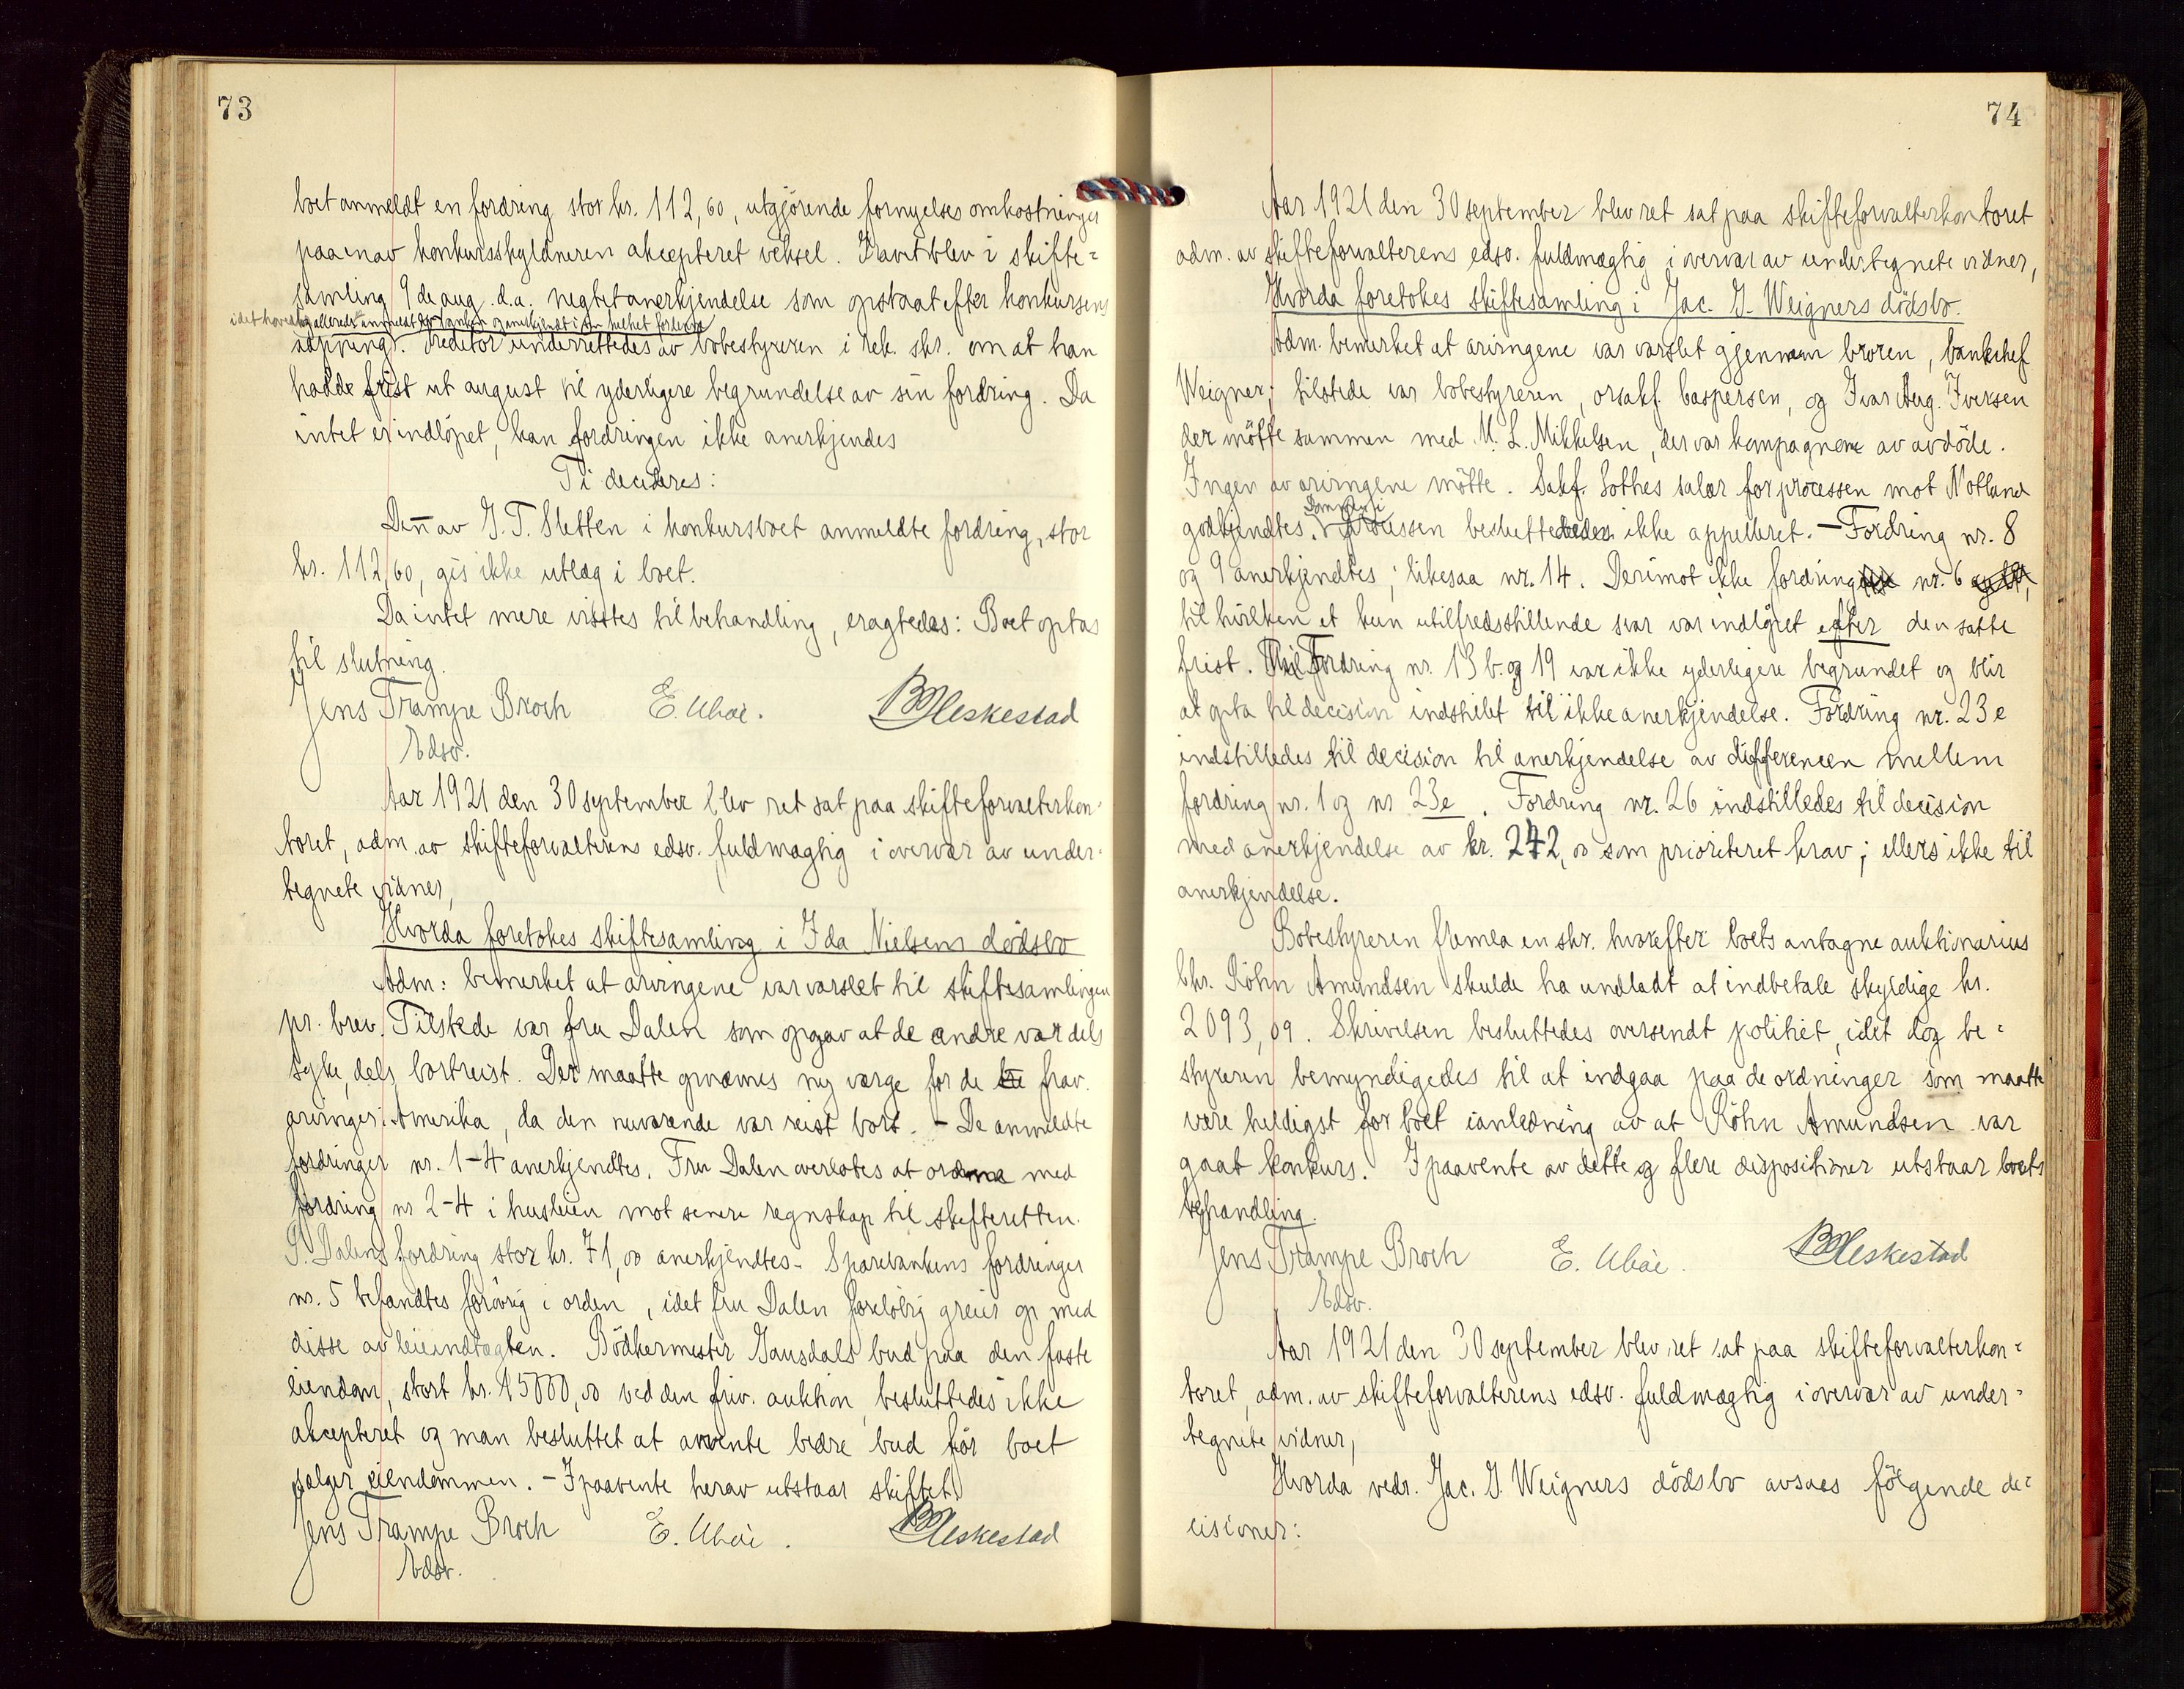 73
boet anmeldt en fordring stor kr. 112,60, utgjörende fornyelsesomkostninger
paa en av konkursskyldneren akcepteret veksel. Kravet blev i skifte=
samling 9de aug. d.a. negtet anerkjendelse som opstaat efter konkursens
idet hoved allerede anmeldt av banken og anerkjendt i sin helhet
aapning. Kreditor underrettedes av bobestyreren i rek. skr. om at han
hadde frist ut august til yderligere begrundelse av sin fordring. Da
intet er indlöpet, kan fordringen ikke anerkjendes
Ti decideres:
Den av J. T. Sletten i konkursboet anmeldte fordring, stor
kr. 112,60, gis ikke utlæg i boet.
Da intet mere visstes til behandling, eragtedes: Boet optas
til slutning.
Jens Trampe Broch E. Ubøe. B Meskestad
Edsv.
Aar 1921 den 30 september blev ret sat paa skifteforvalterkon-
toret, adm. av skifteforvalterens edsv. fuldmægtig i overvær av under-
tegnete vidner,
Hvorda foretokes skiftesamling i Ida Nielsens dödsbo
Adm: bemerket at arvingene var varslet til skiftesamlingen
pr. brev. Tilstede var fru Dalen som opgav at de andre var dels
syke, dels bortreist. Der maatte opnævnes ny værge for de frav.
arvinger i Amerika, da den nuværende var reist bort. - De anmeldte
fordringer nr. 1-4 anerkjendtes. Fru Dalen overlotes at ordne med
fordring nr 2-4 i husleien mot senere regnskap til skifteretten.
S. Dalens fordring stor kr. 71,00 anerkjendtes - Sparebankens fordringer
nr. 5 befandtes forövrig i orden, idet fru Dalen forelöbig greier op med
disse av leieindtægten. Bödkermester Gausdals bud paa den faste
eiendom, stort kr. 15000,00 ved den friv. auktion, besluttedes ikke
akcepteret og man besluttet at avvente bedre bud för boet
sælger eiendommen. - I paavente herav utstaar skiftet.
Jens Trampe Broch E. Ubøe. B Meskestad
Edsv.
74
Aar 1921 den 30 september blev ret sat paa skifteforvalterkontoret
adm. av skifteforvalterens edsv. fuldmægtig i overvær av undertegnete vidner,
Hvorda foretokes skiftesamling i Jac. J. Weigners dödsbo.
Adm. bemerket at arvingene var varslet gjennem broren, bankchef
Weigner; tilstede var bobestyreren, orsakf. Caspersen, og Ivar Aug. Iversen
der mötte sammen med M. L. Mikkelsen, der var kompagnon av avdöde.
Ingen av arvingene mötte. Sakf. Lothes salær for processen mot Notland
Dommen i
godkjendtes. processen besluttedes ikke appelleret. - Fordring nr. 8
og 9 anerkjendtes; likesaa nr. 14. Derimot ikke fordring nr. 6
til hvilken et kun utilfredsstillende svar var indlöpet efter den satte
frist. Fordring nr. 13 b. og 19 var ikke yderligere begrundet og blir
at opta til decision indstillet til ikke anerkjendelse. Fordring nr. 23 e
indstilledes til decision til anerkjendelse av differencen mellem
fordring nr. 1 og nr 23e. Fordring nr. 26 indstilledes til decision
med anerkjendelse av kr. 242,00 som prioriteret krav; ellers ikke til
anerkjendelse.
Bobestyreren fremla en skr. hvorefter boets antagne auktionarius
hr. Röhn Amundsen skulde ha undladt at indbetale skyldige kr.
2093,09. Skrivelsen besluttedes oversendt politiet, idet dog be=
styreren bemyndigedes til at indgaa paa de ordninger som maatte
være heldigst for boet i anledning av at Röhn Amundsen var
gaat konkurs. I paavente av dette og flere dispositioner utstaar boets
behandling.
Jens Trampe Broch E. Ubøe. B Meskestad
Edsv.
Aar 1921 den 30 september blev ret sat paa skifteforvalterkon=
toret, adm. av skifteforvalterens edsv. fuldmægtig i overvær av under=
tegnete vidner,
Hvorda vedr. Jac. J. Weigners dödsbo avsaes fölgende de=
cisioner: